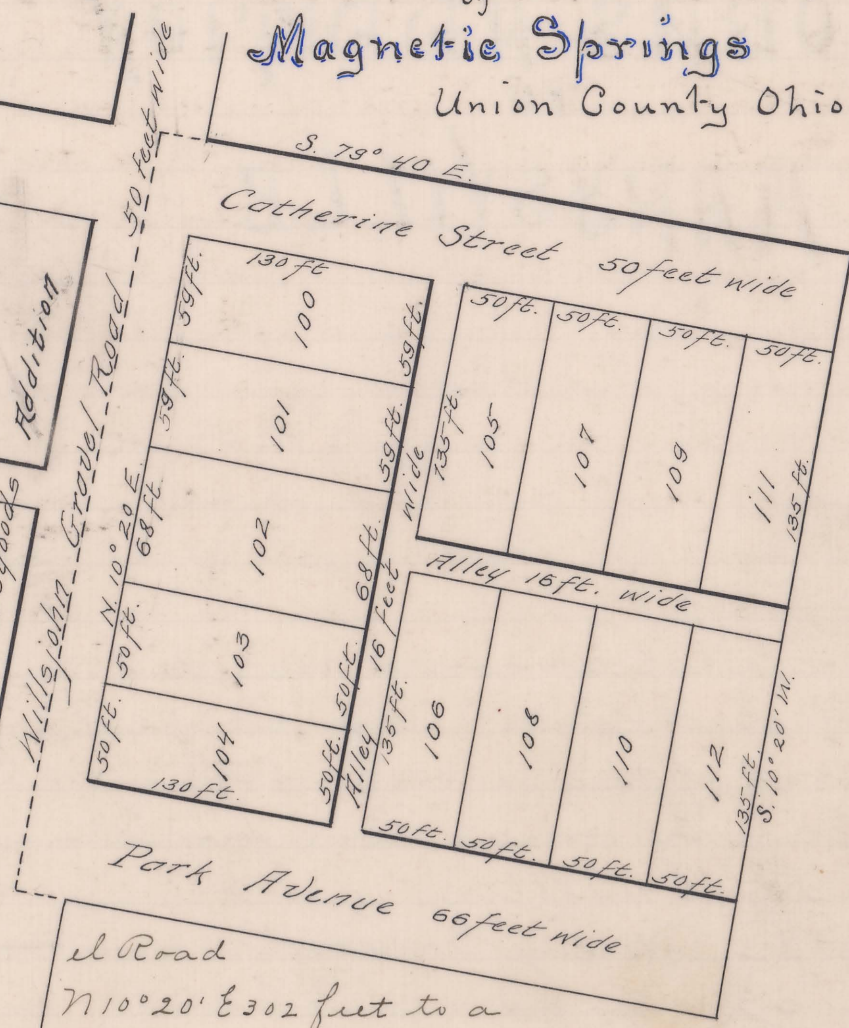 Magnetic Springs
Union County Ohio
S. 79° 40 E.
Catherine Street 50 feet wide
Willsjohn Gravel Road 50 feet wide
N. 10° 20 E.
Addition
130 ft
59 ft.
100
59 ft.
59 ft.
101
59 ft.
68 ft.
102
68 ft.
50 ft.
103
50 ft.
50 ft.
104
50 ft.
130 ft.
Alley 16 feet wide
50 ft.
50 ft.
50 ft.
50 ft.
135 ft.
105
107
109
111
135 ft.
Alley 16 ft. wide
135 ft.
106
108
110
112
135 ft.
S. 10° 20' W.
50 ft.
50 ft.
50 ft.
50 ft.
Park Avenue 66 feet wide
el Road
N 10° 20' E 302 feet to a